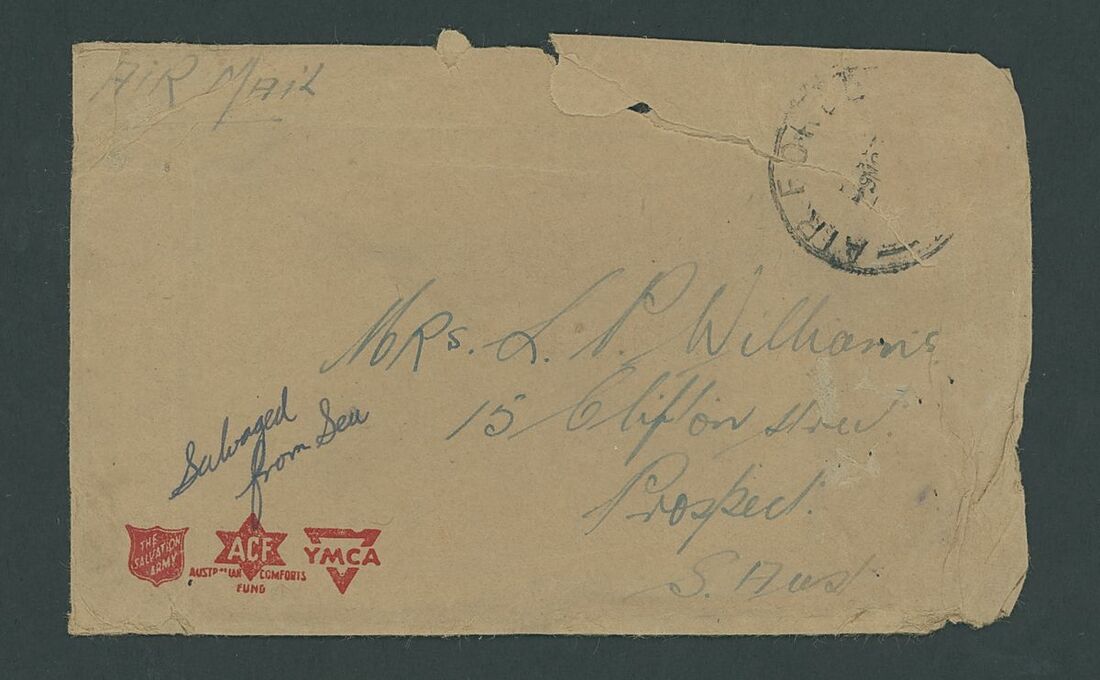 AIR MAIL
AIR FORCE
Mrs. L. P. Williams
15 Clifton Street.
Prospect.
S. Aust
Salvaged
from Sea
THE
SALVATION
ARMY
ACF
AUSTRALIAN COMFORTS
FUND
YMCA